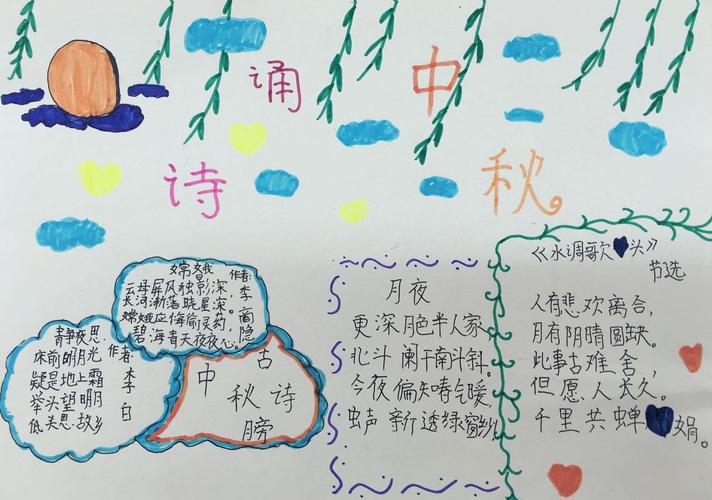 诵 中
诗 秋
嫦娥
作者:李商隐
云母屏风独影深,
长河渐落晓星深。
嫦娥应悔偷灵药,
碧海青天夜夜心。
静夜思
作者:李白
床前明月光
疑是地上霜
举头望明月
低头思故乡
古
中 秋 诗
膀
月夜
更深月色半人家,
北斗阑干南斗斜。
今夜偏知春气暖,
虫声新透绿窗纱
《水调歌头》
节选
人有悲欢离合,
月有阴晴圆缺。
此事古难舍,
但愿人长久。
千里共蝉娟。